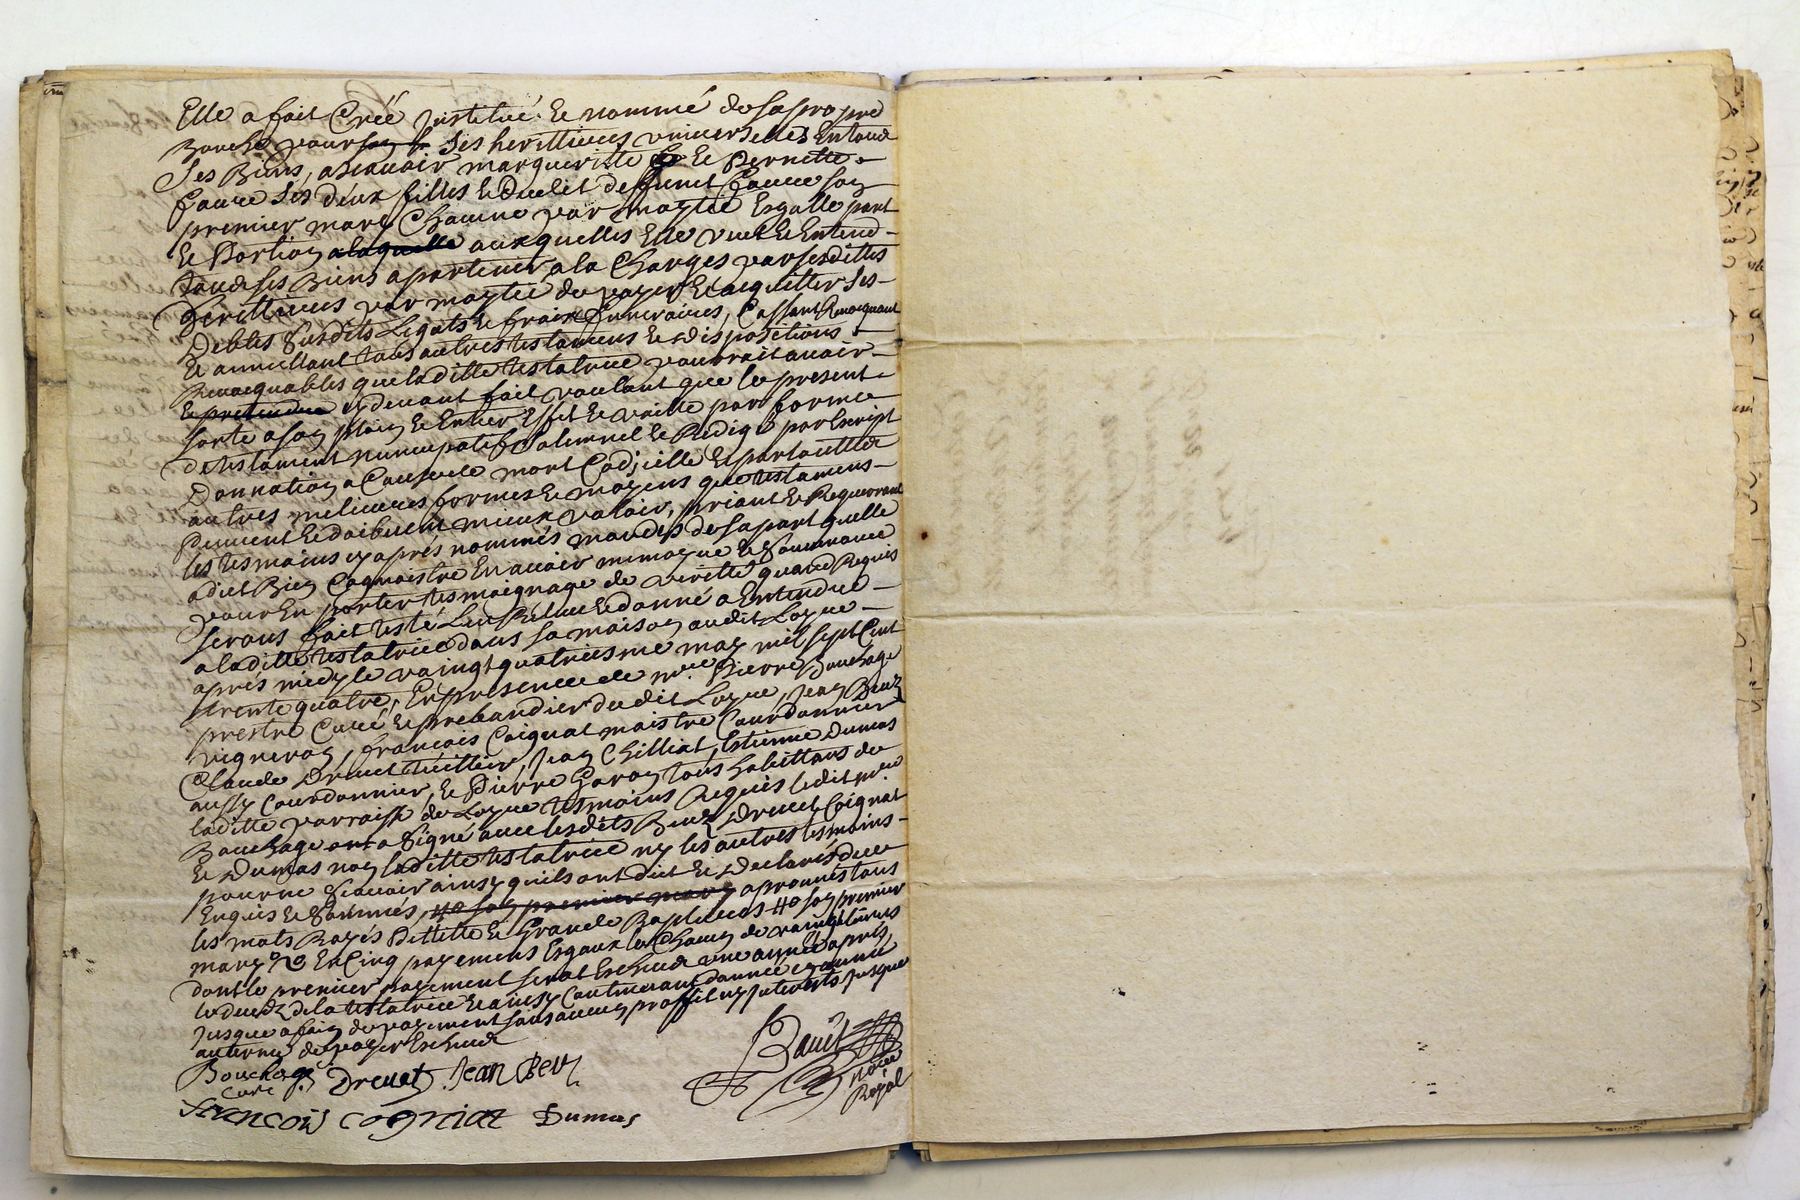 Elle a fait Créé Institué & nommé de sa propre
Bouche pour ses herittieres universelles En tous
ses Biens, ascavoir marguerite & Pernette
faure ses deux filles & dudit deffunct faure son
premier mary Chacune par moytié Esgalle part
& Portion a laquelle auxquelles Elle veut & Entend
tous ses Biens apartenir a la Charges par sesdittes
herittieres par moytié de payer & acquitter ses
Debtes susdits Legats & fraix funeraires, Cassant Revocquant
& annullant tous autres testamens & dispositions
Revocquables que laditte testatrice pourroit avoir
cy devant fait voulant que le present
sorte a son plein & Entier Effet & vaille par forme
de testament nuncupatif solemnel & Redigé par Escript
Donnation a Cause de mort Codicille & par toutes
autres melieures formes & moyens que testamens
peuvent & doibvent mieux valoir, priant & Requerant
les tesmoins cy aprés nommés mandés de sa part quelle
a dict Bien Cognoistre En avoir memoyre & souvenance
pour En porter tesmoignage de verité quand Requis
serons fait testé Leu Releu & donné a Entendre
a laditte testatrice dans sa maison audit Loyre
aprés midy le vaingt quatriesme may mil sept Cent
trente quatre, En presence de mre. Pierre Bouchage
prestre Curé & prebandier dudit Loyre, Jean Beuz
vigneron, francois Coignat maistre Courdonnier
Claude Drevet tueillier, Jean Chilliat, Estienne Dumas
aussy Courdonnier, & Pierre Garon tous habittans de
laditte parroisse de Loyre tesmoins Requis ledit mre.
Bouchage a signé avec lesdits Beuz, Drevet, Coignat
& Dumas non laditte testatrice ny les autres tesmoins
pour ne scavoir ainsy quils ont dict & declarés de ce
Enquis & sommés, son premier mary aprouvés tous
les mots Rayés Pettitte & Grande Raplicas son premier
mary En Cinq payemens Esgaux la Chacun de vaingt livres
dont le premier payement serat Escheut une année aprés
le decez de la testatrice & ainsy Continuant d'année En année
jusque a fain de payement sans aucun proffit ny jnterests jusque
au terme de payer Escheut
Bouchage Drevet Jean Beuz
Curé
francois cogniat Dumas